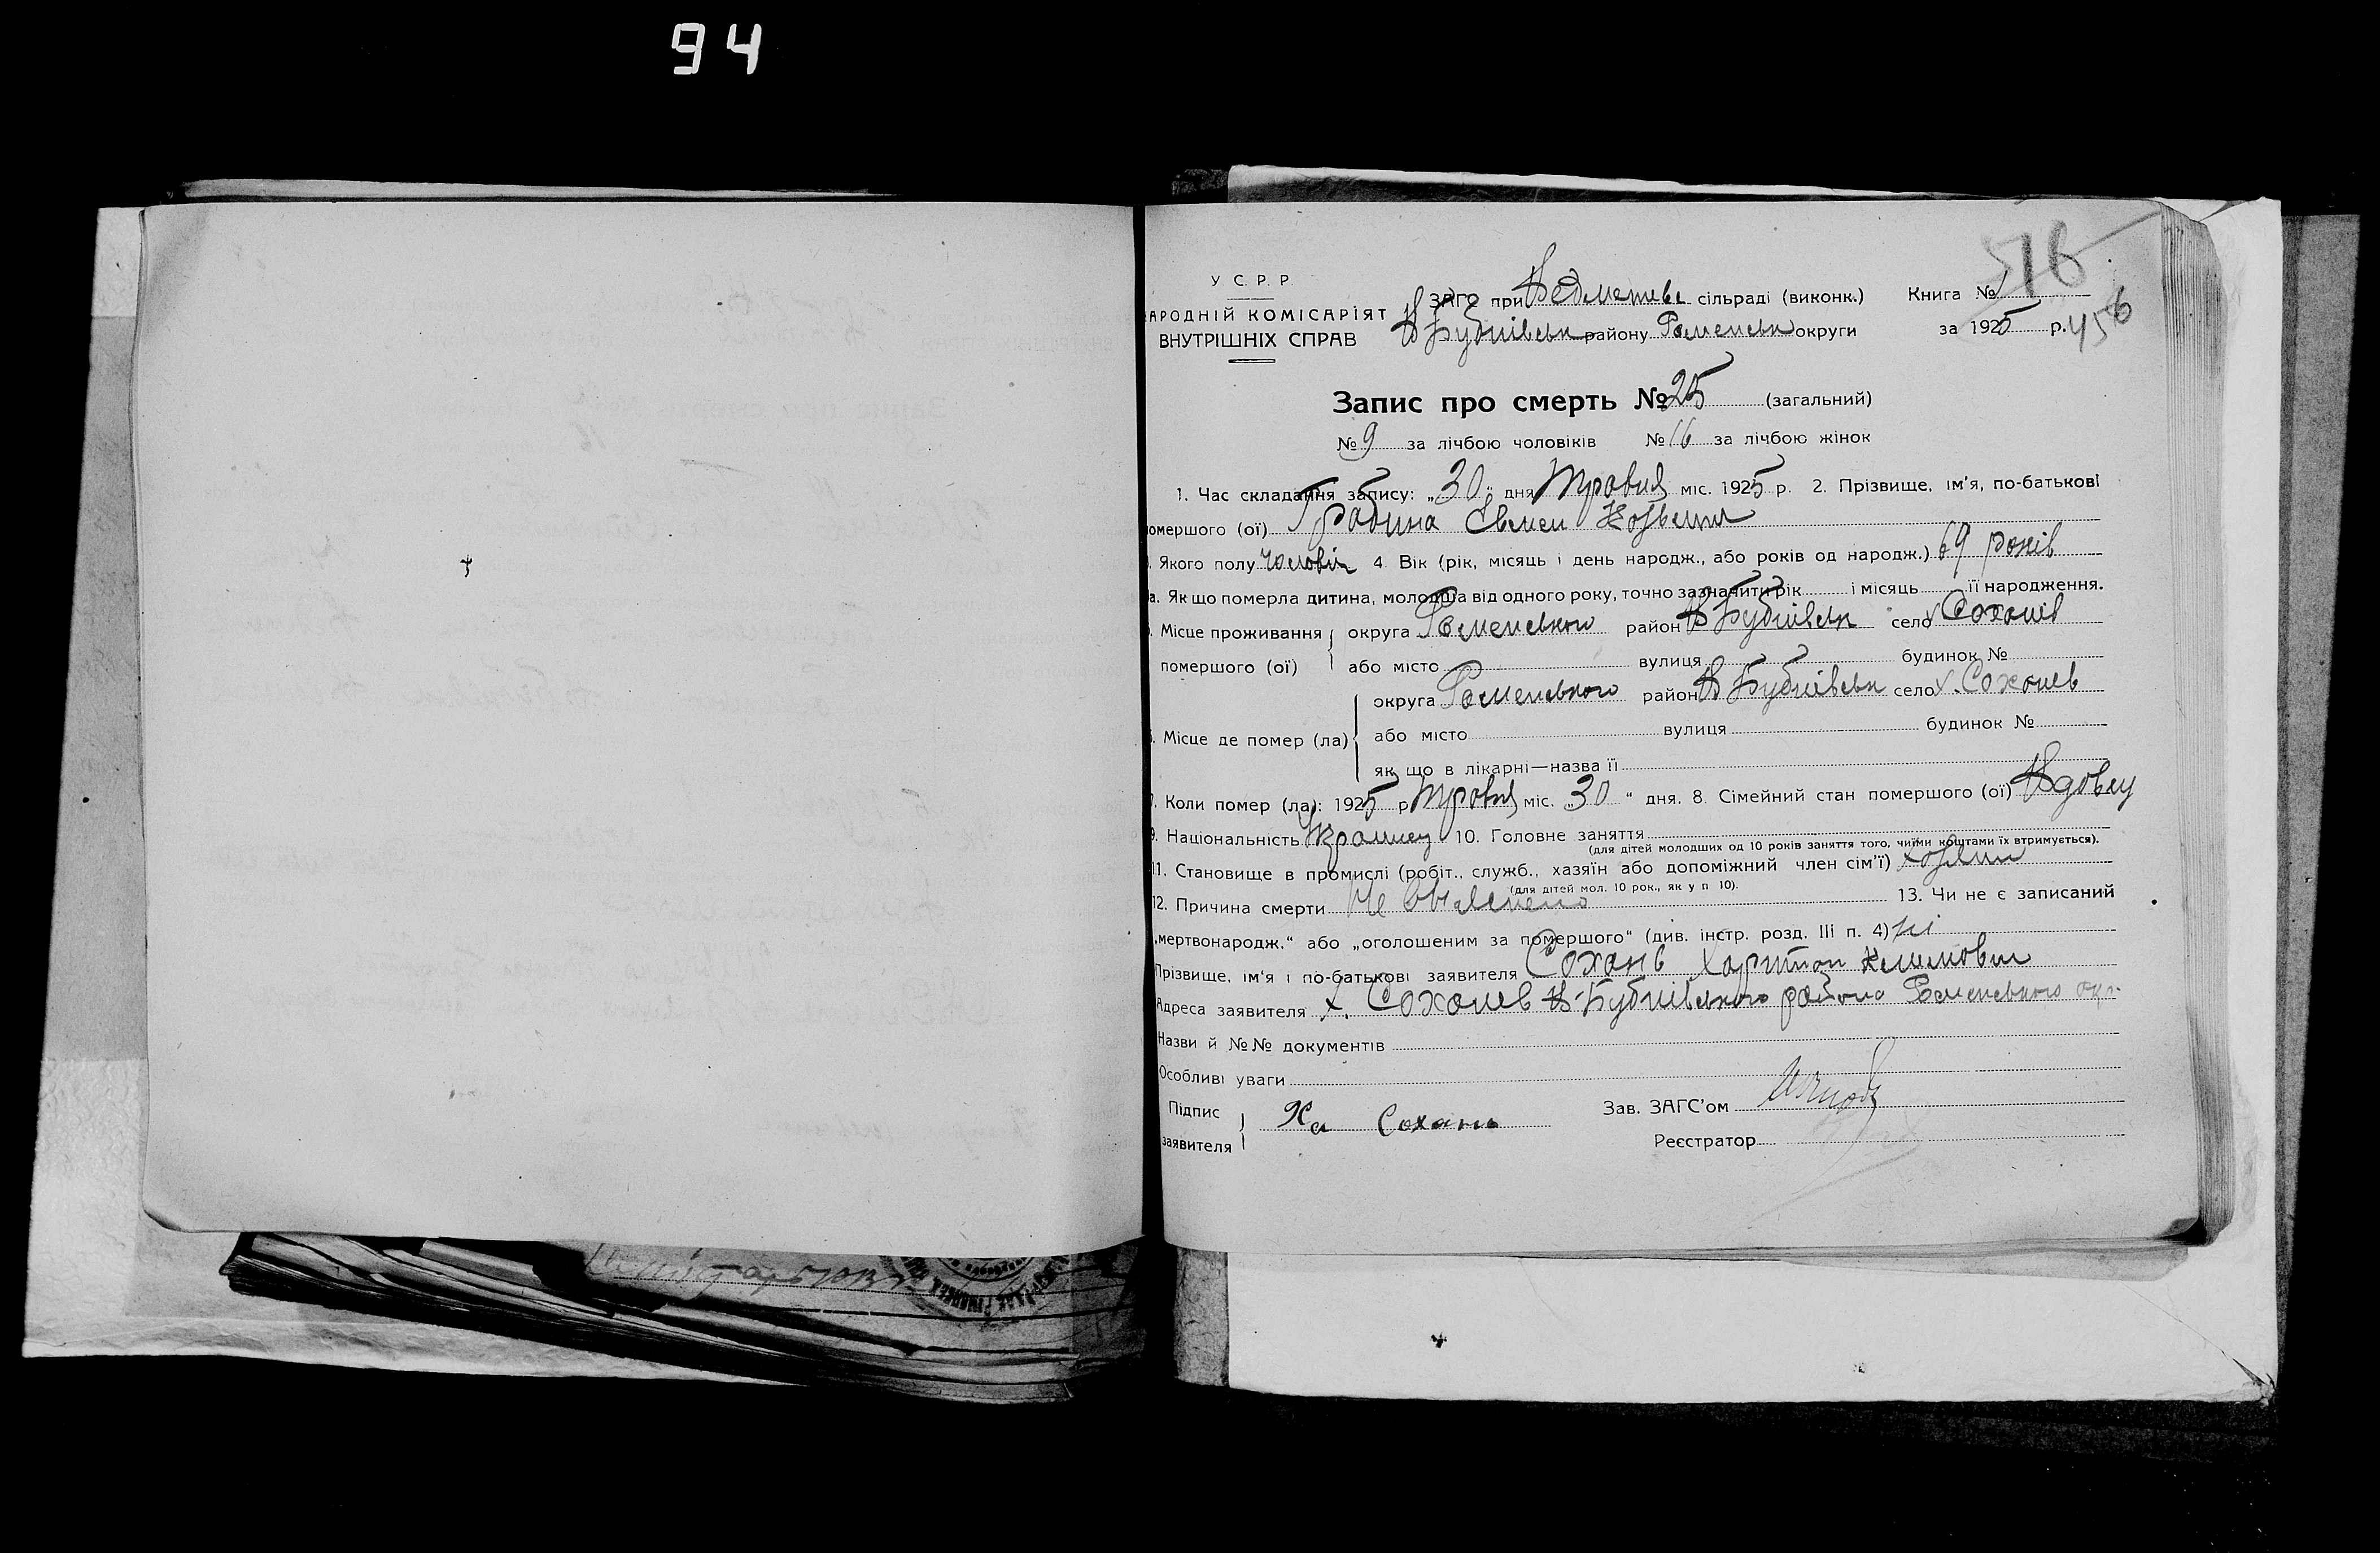 94
516
456
У. С. Р. Р.
АРОДНІЙ КОМІСАРІЯТ
ВНУТРІШНІХ СПРАВ
ЗАГС при сільраді (виконк.) Книга № 1
В Бубнівськ району Роменськ округи за 1925 р.
Запис про смерть № 25 (загальний)
№ 9 за лічбою чоловіків № 16 за лічбою жінок
1. Час складання запису: „30" дня Травня міс. 1925 р. 2. Прізвище, ім'я, по-батькові
омершого (ої) Грабина Євмен
Якого полу чоловік 4. Вік (рік, місяць і день народж., або років од народж.) 69 років
а. Як що померла дитина, молодша від одного року, точно зазначити рік і місяць її народження.
Місце проживання округа Роменського район В Бубнівськ село х Соханів
помершого (ої) або місто вулиця будинок №
округа Роменського район В Бубнівськ село х. Соханев
Місце де помер (ла) або місто вулиця будинок №
як що в лікарні—назва її
7. Коли помер (ла): 1925 р Травня міс. „30" дня. 8. Сімейний стан помершого (ої) Вдовец
9. Національність Украинец 10. Головне заняття
(для дітей молодших од 10 років заняття того, чиїми коштами їх втримується).
11. Становище в промислі (робіт., служб., хазяїн або допоміжний член сім'ї) хозяин
(для дітей мол. 10 рок., як у п 10).
12. Причина смерти Не 13. Чи не є записаний
„мертвонародж." або „оголошеним за помершого" (див. інстр. розд. III п. 4) ні
Прізвище, ім'я і по-батькові заявителя Сохань Харитон
Адреса заявителя х. Соханев В-Бубнівского района Роменського окр.
Назви й №№ документів
Особливі уваги
Підпис
заявителя Ха Сохань
Зав. ЗАГС'ом
Реєстратор